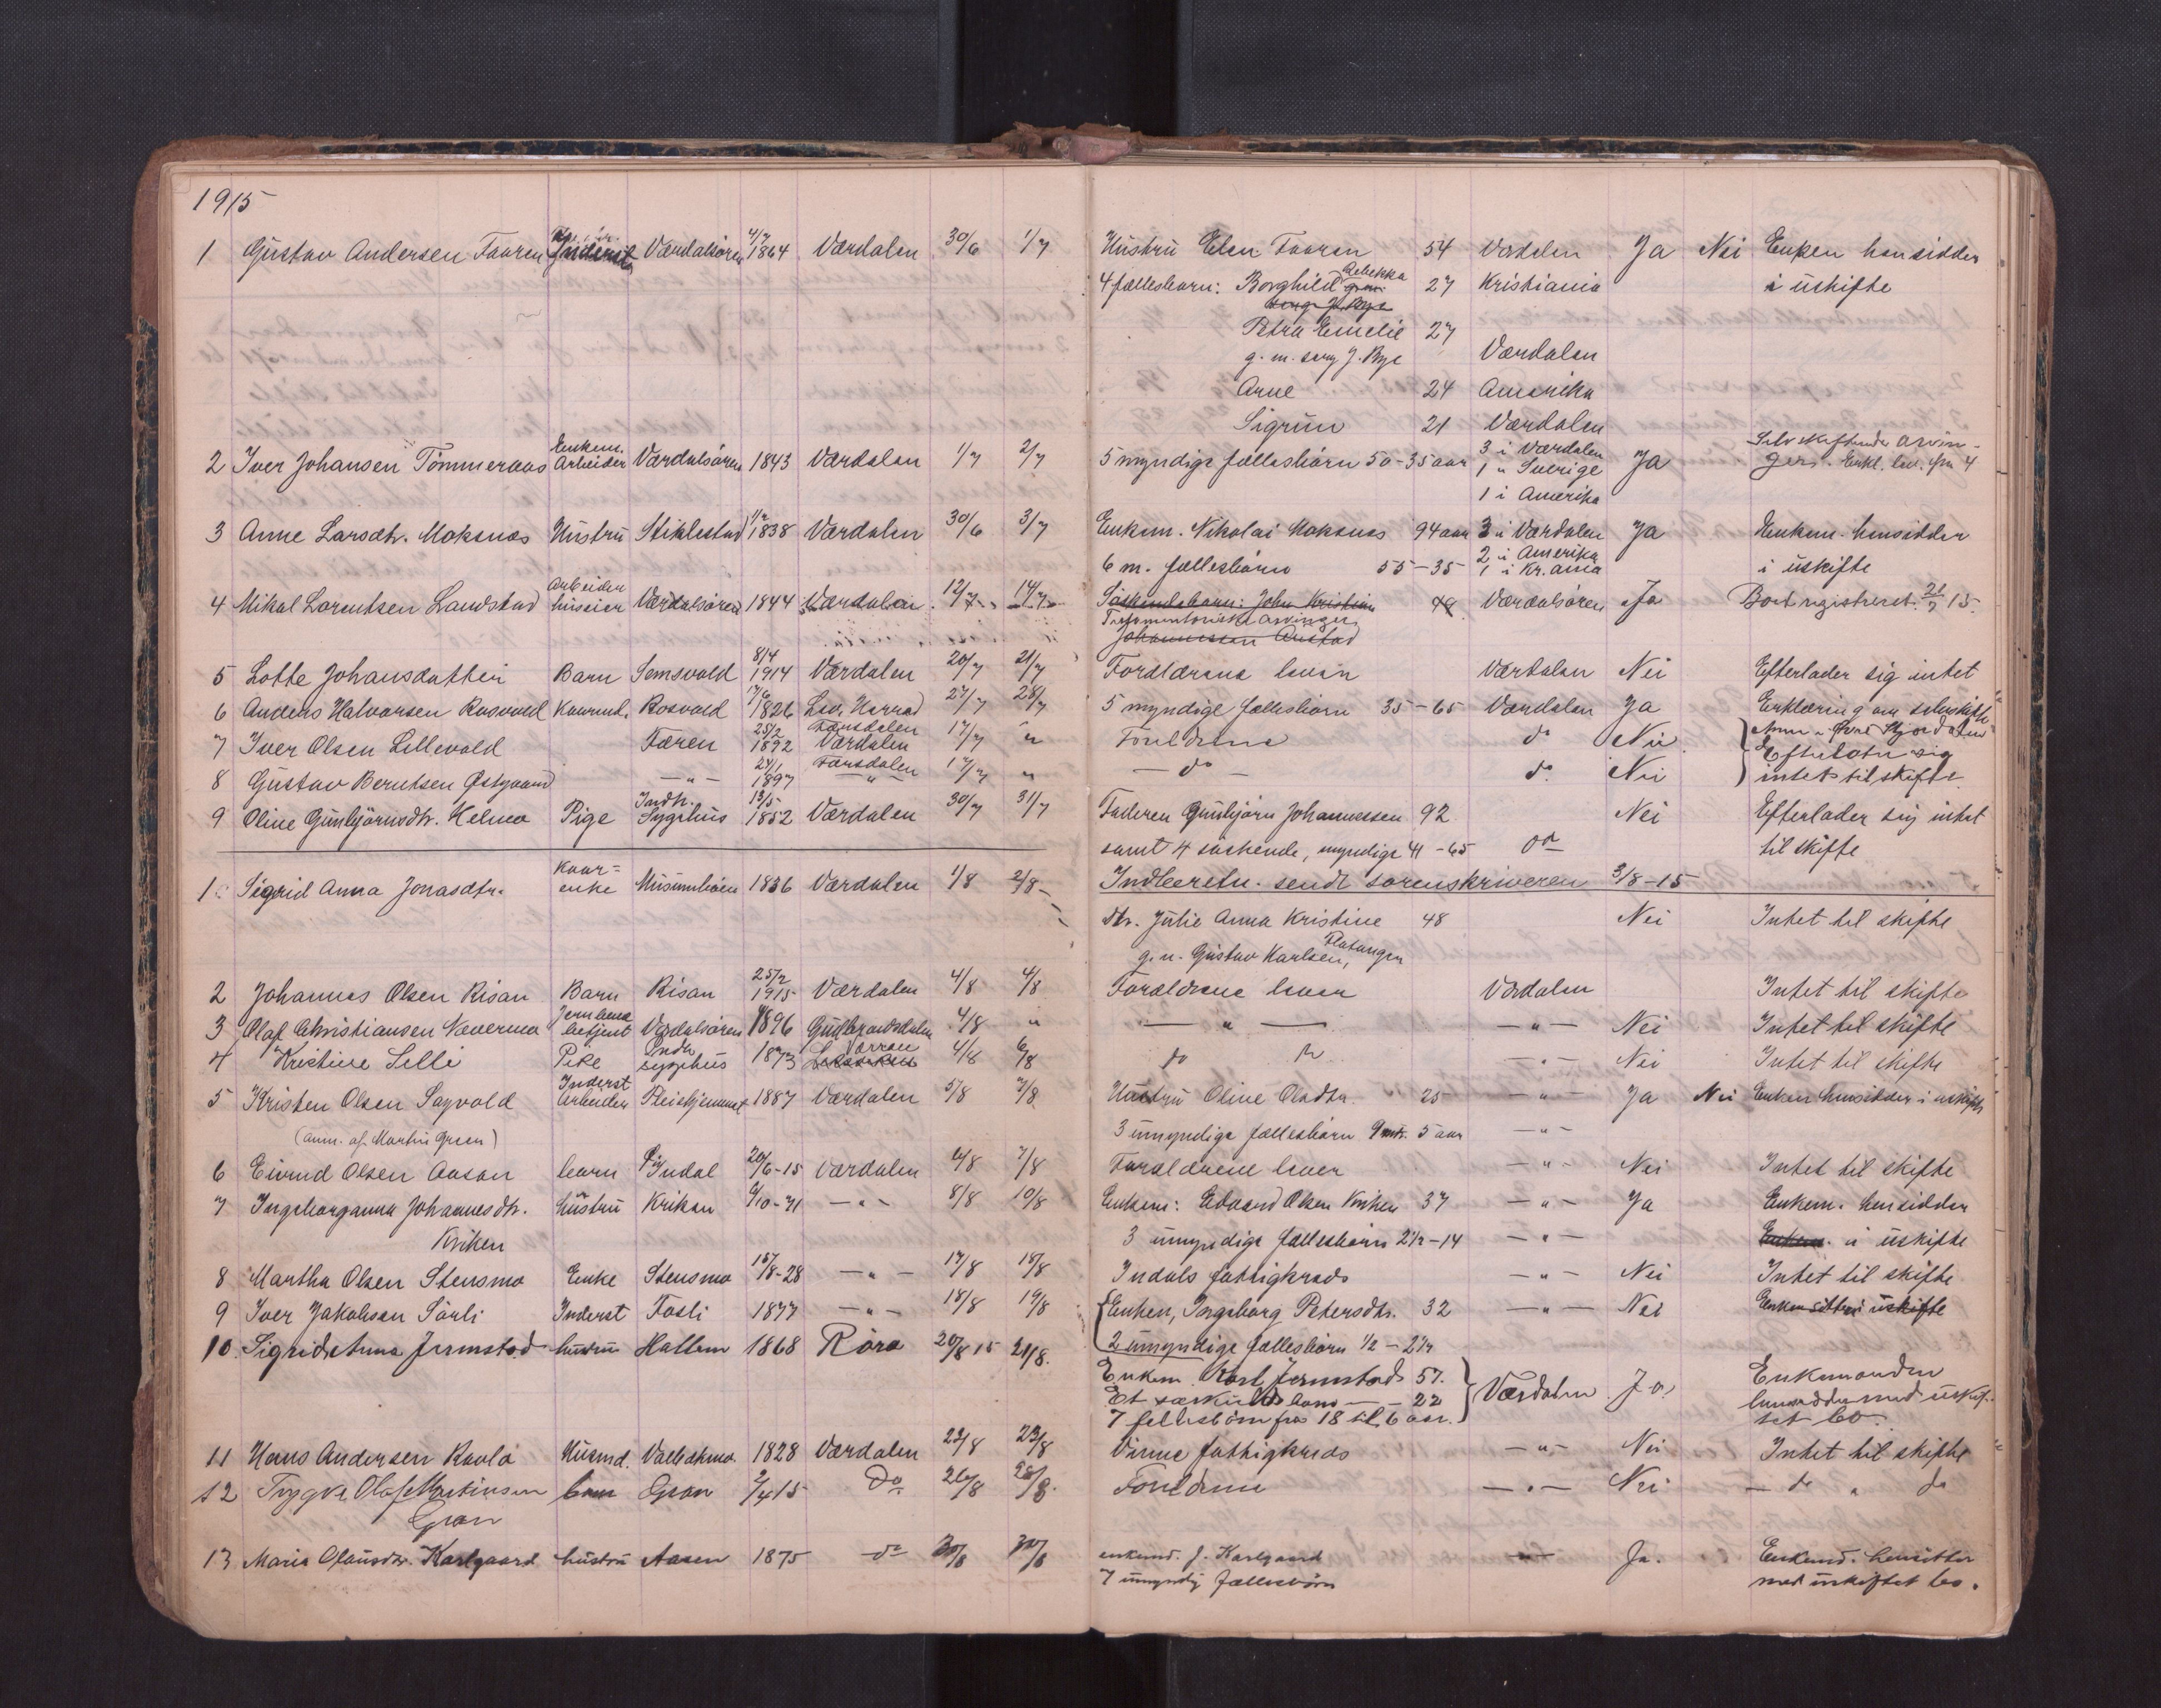 1915
1 Gustav Andersen Faaren Inderst Værdalsören 4/7 1864 Værdalen 30/6 1/7 Hustru Elen Faaren 54 Værdalen Ja Nei Enken hensidder
4 fællesbarn: Borghild Rebekka 27 Kristiania i uskifte
Petra Emelie 27
g. m. serg J. Bye Værdalen
Arne 24 Amerika
Sigrun 21 Værdalen
2 Iver Johansen Tömmeraas Enkem. Arbeider Værdalsören 1843 Værdalen 1/7 2/7 5 myndige fællesbörn 50-35 aar 3 i Værdalen Ja Selvskiftende arvin-
1 " Sverige gers. Erkl. lev. fra 4
1 i Amerika
3 Anne Larsdtr. Moksnæs Hustru Stiklestad 1838 Værdalen 30/6 3/7 Enkem. Nikolai Moksnæs 94 aar 3 i Værdalen Ja Enkem. hensidder
6 m. fællesbörn 55-35 2 i Amerika 1 i Kr.ania i uskifte
4 Mikal Lorentsen Landstad Arbeider huseier Værdalsören 1844 Værdalen 12/7 14/7 Söskendebarn: John Kristian Værdalsören Ja Boet registreret 21/7 15.
Testamentariske arvinger
Johannessen Austad
5 Lotte Johansdatter Barn Semsvold 8/4 1914 Værdalen 20/7 21/7 Forældrene lever Værdalen Nei Efterlader sig intet
6 Anders Halvorsen Rosvold Kaarmd. Rosvold 17/6 1826 Lev. Herred 27/7 28/7 5 myndige fællesbörn 35-65 Værdalen Ja Erklæring om selvskifte
7 Iver Olsen Lillevold Færen 25/2 1892 Værdalen 17/7 " Forældrene do Nei Efterlater sig
8 Gustav Berntsen Östgaard -"- 24/1 1897 -"- 17/7 " - do - do Nei intet til skifte
9 Oline Gunbjörnsdtr. Helmo Pige Indh. Sygehus 13/5 1852 Værdalen 30/7 31/7 Faderen Gunbjörn Johannessen 92 Nei Efterlader sig intet
samt 4 söskende, myndige 41-65 do til skifte
Indberetn. sendt sorenskriveren 3/8-15
1 Sigrid Anna Jonasdtr. Kaar= enke 1836 Værdalen 1/8 2/8 dtr. Julie Anna Kristine 48 Nei Intet til skifte
g. m. Gustav Karlsen, Flatanger
2 Johannes Olsen Risan Barn Risan 25/2 1915 Værdalen 4/8 4/8 Forældrene lever Værdalen Intet til skifte
3 Olaf Christiansen Nævermo Jernbane betjent Værdalsören 1896 Gudbrandsdalen 4/8 " - " - -"- Nei Intet til skifte
4 Kristine Lilli Pike Indh. sygehus 1873 Verran 4/8 6/8 do -"- Nei Intet til skifte
5 Kristen Olsen Sagvold Inderst Arbeider Pleiehjemmet 1887 Værdalen 5/8 7/8 Hustru Oline Olsdtr. 25 -"- Ja Nei Enken hensidder i uskifte
(anm. af Martin Green) 3 umyndige fællesbörn 9 mdr. 5 aar -"-
6 Eivind Olsen Aasan barn Indal 20/6-15 Værdalen 4/8 7/8 Forældrene lever -"- Nei Intet til skifte
7 Ingeborganna Johannesdtr. hustru Kriken 6/10-71 -"- 8/8 10/8 Enkem: Edvard Olsen Kriken 37 -"- Ja Enkem. hensidder
Kriken 3 umyndige fællesbörn 2½-14 -"- i uskifte
8 Martha Olsen Stensmo Enke Stensmo 15/8-28 -"- 17/8 18/8 Indals fattigkreds -"- Nei Intet til skifte
9 Iver Jakobsen Sörli Inderst Fosli 1877 -"- 18/8 19/8 Enken, Ingeborg Petersdtr. 32 -"- Nei Enken sitter i uskifte
10. Sigrid Anna Jermstad hustru Hallem 1868 Röra 20/8 15 21/8. 2 umyndige fællesbörn ½-2½
Enkem. Karl Jermstad 57. Værdalen Ja Enkemanden
Et særkuldsbarn - 22 hensidder med uskif-
7 fellesbörn fra 18 til 6 aar. tet bo.
11 Hans Andersen Raola Husmd. Vallekmo 1828 Værdalen 22/8 23/8 Vinne fattigkreds -"- Nei Intet til skifte
12 Trygve Olaf Martinsen barn Gran 2/4 15 Do 26/8 28/8. Forældrene -"- Nei - do " do
Gran
13 Maria Olausdtr. Karlgaard hustru Aasen 1875 do 30/8 30/8 enkemd. J. Karlgaard -"- Ja. Enkemd. hensitter
7 umyndig fællesbörn med uskiftet bo.